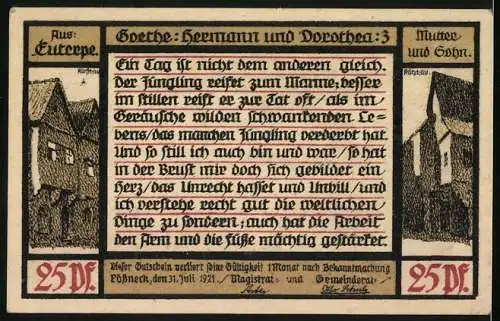 Aus:
Euterpe.
Goethe: Hermann und Dorothea: 3
Mutter
und Sohn.
Ein Tag ist nicht dem anderen gleich
der Jüngling reifet zum Manne; besser
im stillen reift er zur Tat oft/als im
Geräusche wilden schwankenden Le=
bens/das manchen Jüngling verderbt hat.
Und so still ich auch bin und war/so hat
in der Brust mir doch sich gebildet ein
Herz/das Unrecht hasset und Unbill/und
ich verstehe recht gut die weltlichen
Dinge zu sondern; auch hat die Arbeit
den Arm und die Füße mächtig gestärket.
25 Pf.
25 Pf.
Dieser Gutschein verliert seine Gültigkeit 1 Monat nach Bekanntmachung
Pößneck, den 31. Juli 1921. Magistrat und Gemeinderat